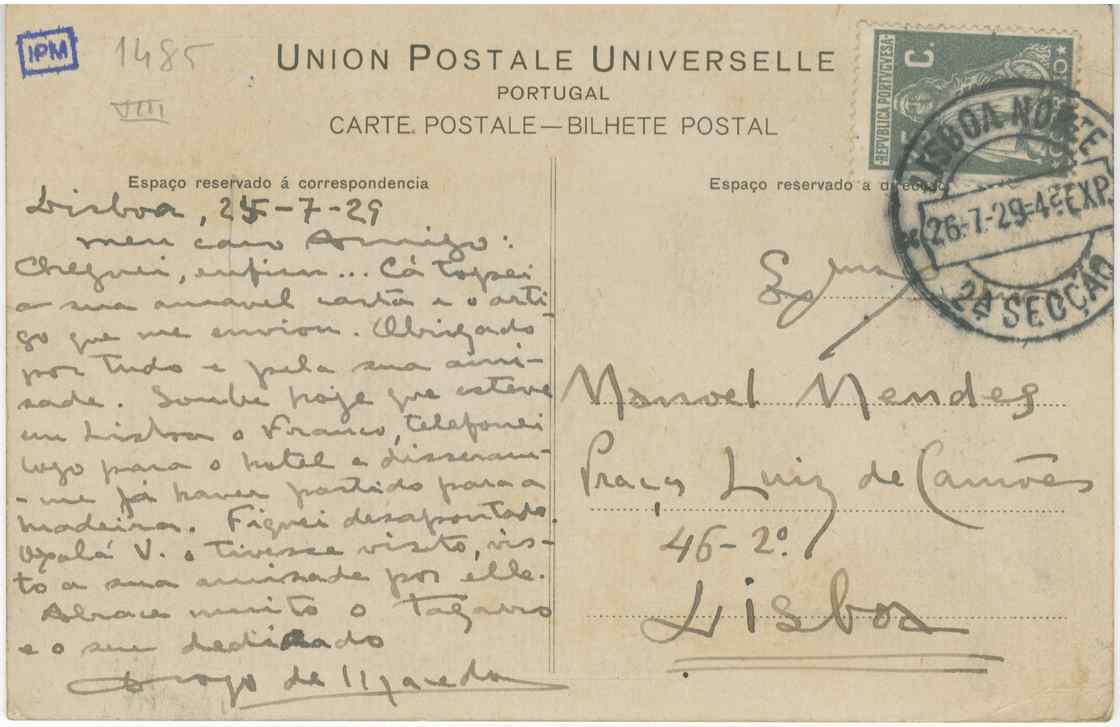 IPM
1485
VIII
UNION POSTALE UNIVERSELLE
PORTUGAL
CARTE POSTALE—BILHETE POSTAL
REPVBLICA PORTVGVESA
C.
LISBOA NORTE
26-7-29-4ª EXP.
2ª SECÇÃO
Espaço reservado á correspondencia
Lisboa, 25-7-29
Meu caro Amigo:
Cheguei, enfim... Cá topei
a sua amavel carta e o arti-
go que me enviou. Obrigado
por tudo e pela sua ami-
sade. Soube hoje que esteve
em Lisboa o Franco, telefonei
logo para o hotel e disseram-
-me já haver partido para a
Madeira. Fiquei desapontado.
Oxalá V. o tivesse visto, vis-
to a sua amisade por elle.
Abrace muito o Tagarro
e o seu dedicado
de
Espaço reservado a direcção
Manoel Mendes
Praça Luiz de Camões
46-2º
Lisboa